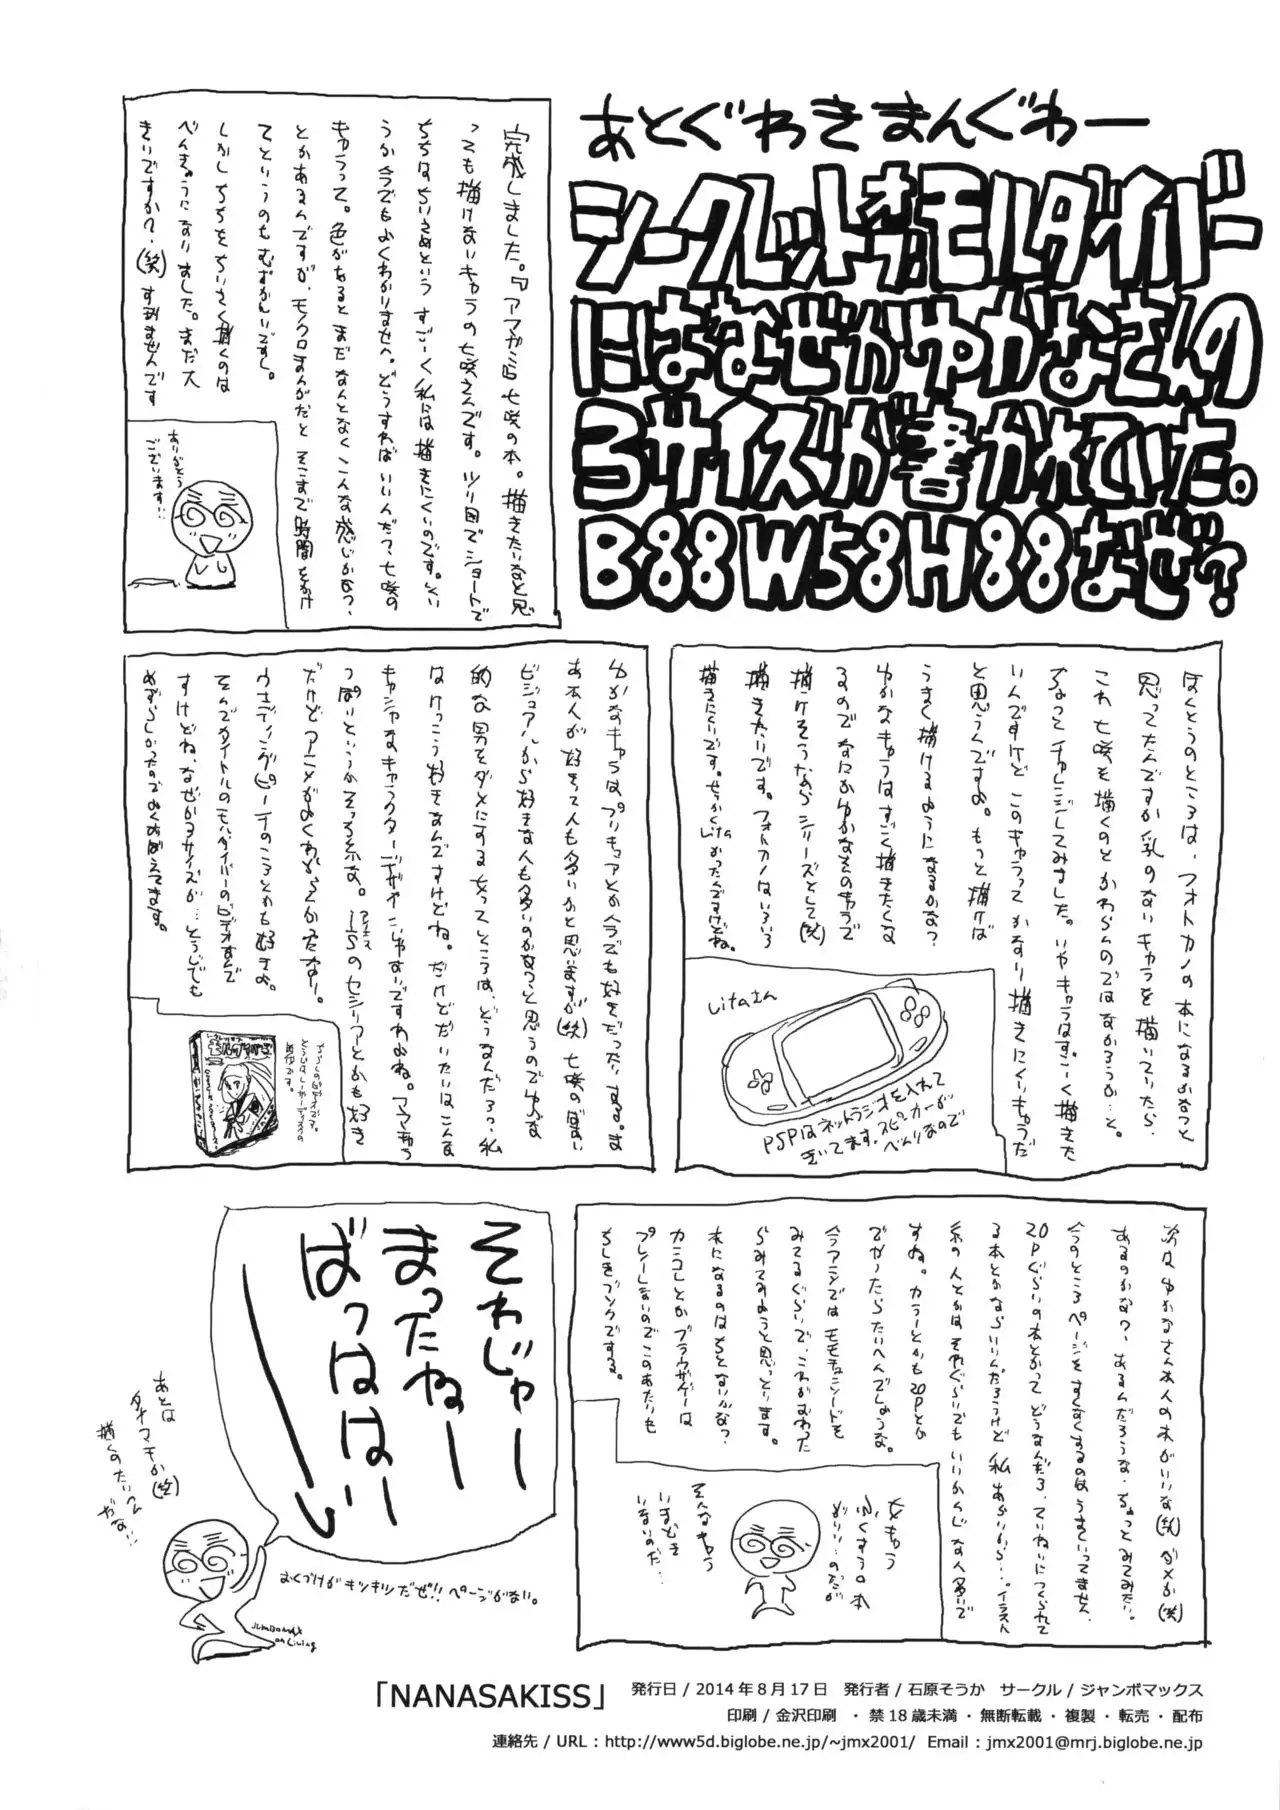 あとぐわきまんぐわー
シークレットオブモルダイバー
にはなぜかゆかなさんの
3サイズが書かれていた。
B88W58H88なぜ?
完成しました。『アマガミ』七咲の本。描きたいなと思
っても描けないキャラの七咲さんです。ツリ目でショートで
ちちはちいさめという すごーく私には描きにくいのです。
キャラって。色があるとまだなんとなくこんな感じかな?、
とかあるんですが、モノクロまんがだと そこまで時間をかけ
てというのもむずかしいですし。
しかし ちちをちいさく描くのは
べんきょうになりました。まだ大
きいですか?、(笑)すいませんです
ありがとう
ございます…
ほんとうのところは、フォトカノの本になるかなっと
思ってたんですが乳のないキャラを描いていたら、
これ 七咲を描くのと かわらんのではなかろうか、と。
ちょっと チャレンジしてみました。いやキャラはすごーく描きた
いんですけど このキャラって かなり描きにくいキャラだ
と思うんですよ。もっと描けば
うまく描けるようになるかな?
ゆかなキャラはすごく描きたくな
るのでなにかゆかなそのキャラで
描けそうならシリーズとして(笑)
描きたいです。フォトカノはいろいろ
描きにくいです。せっかくLita
かったんですけどね。
Litaさん
PSPはネットラジオを入れて
きいてます。スピーカーが
べんりなので
ゆかなキャラは、プリキュアとか今でも好きだったりする。ま
あ本人が好きって人も多いかと思いますが(笑)七咲のばあい
ビジュアルから好きな人も多いのかなっと思うのでゆかな
的な男をダメにする女ってところは、どうなんだろっ、私
はけっこう好きなんですけどね。だけどだいたいはこんな
キャシャなキャラクターデザインじゃないですわよね。ママキャラ
っぽいというかそっち系な。ISのセシリアとかも好き
だけどアニメがよくわからんかったなー。
ウエディングピーチのころとかも好きよ。
そんでタイトルのモルダイバーのビデオなんで
すけどね、なぜか3サイズが…とうじでも
めずらしかったのでよくおぼえてます。
次は ゆかなさん本人の本がいいな(笑)ダメか(笑)
あるのかな?、あるんだろうな、ちょっとみてみたい。
今のところページをすくなくするのはうまくいってません、
20Pぐらいの本とかって どうなんだろ、ていねいにつくられて
る本とかならいいんだろうけど 私 あらいから…。イラスト
系の人とかはそれぐらいでもいいかんじな人多いで
すね。カラーとかも20Pとか
でかったらたいへんでしょうな。
今アニメではモモキュンソードを
みてるぐらいで、これがおわった
らみてみようと思っとります。
本になるのはちとないかな?
カンコレとかブラウザゲーは
プレーしないのでこのあたりも
ちしきブソクでする。
女キャラ
そんなキャラ
いまどき
いないのだ…
それじゃー
まったねー
ばっはは〜い
あとは
タイマモか(笑)
描くのたいへん
だな…
おくづけがキツキツだぜ!!ページがない。
JUMBOMAX
on Living
「NANASAKISS」
発行日 / 2014年8月17日 発行者 / 石原そうか サークル / ジャンボマックス
印刷 / 金沢印刷 ・禁18歳未満・無断転載・複製・転売・配布
連絡先 / URL : http://www5d.biglobe.ne.jp/~jmx2001/ Email : jmx2001@mrj.biglobe.ne.jp